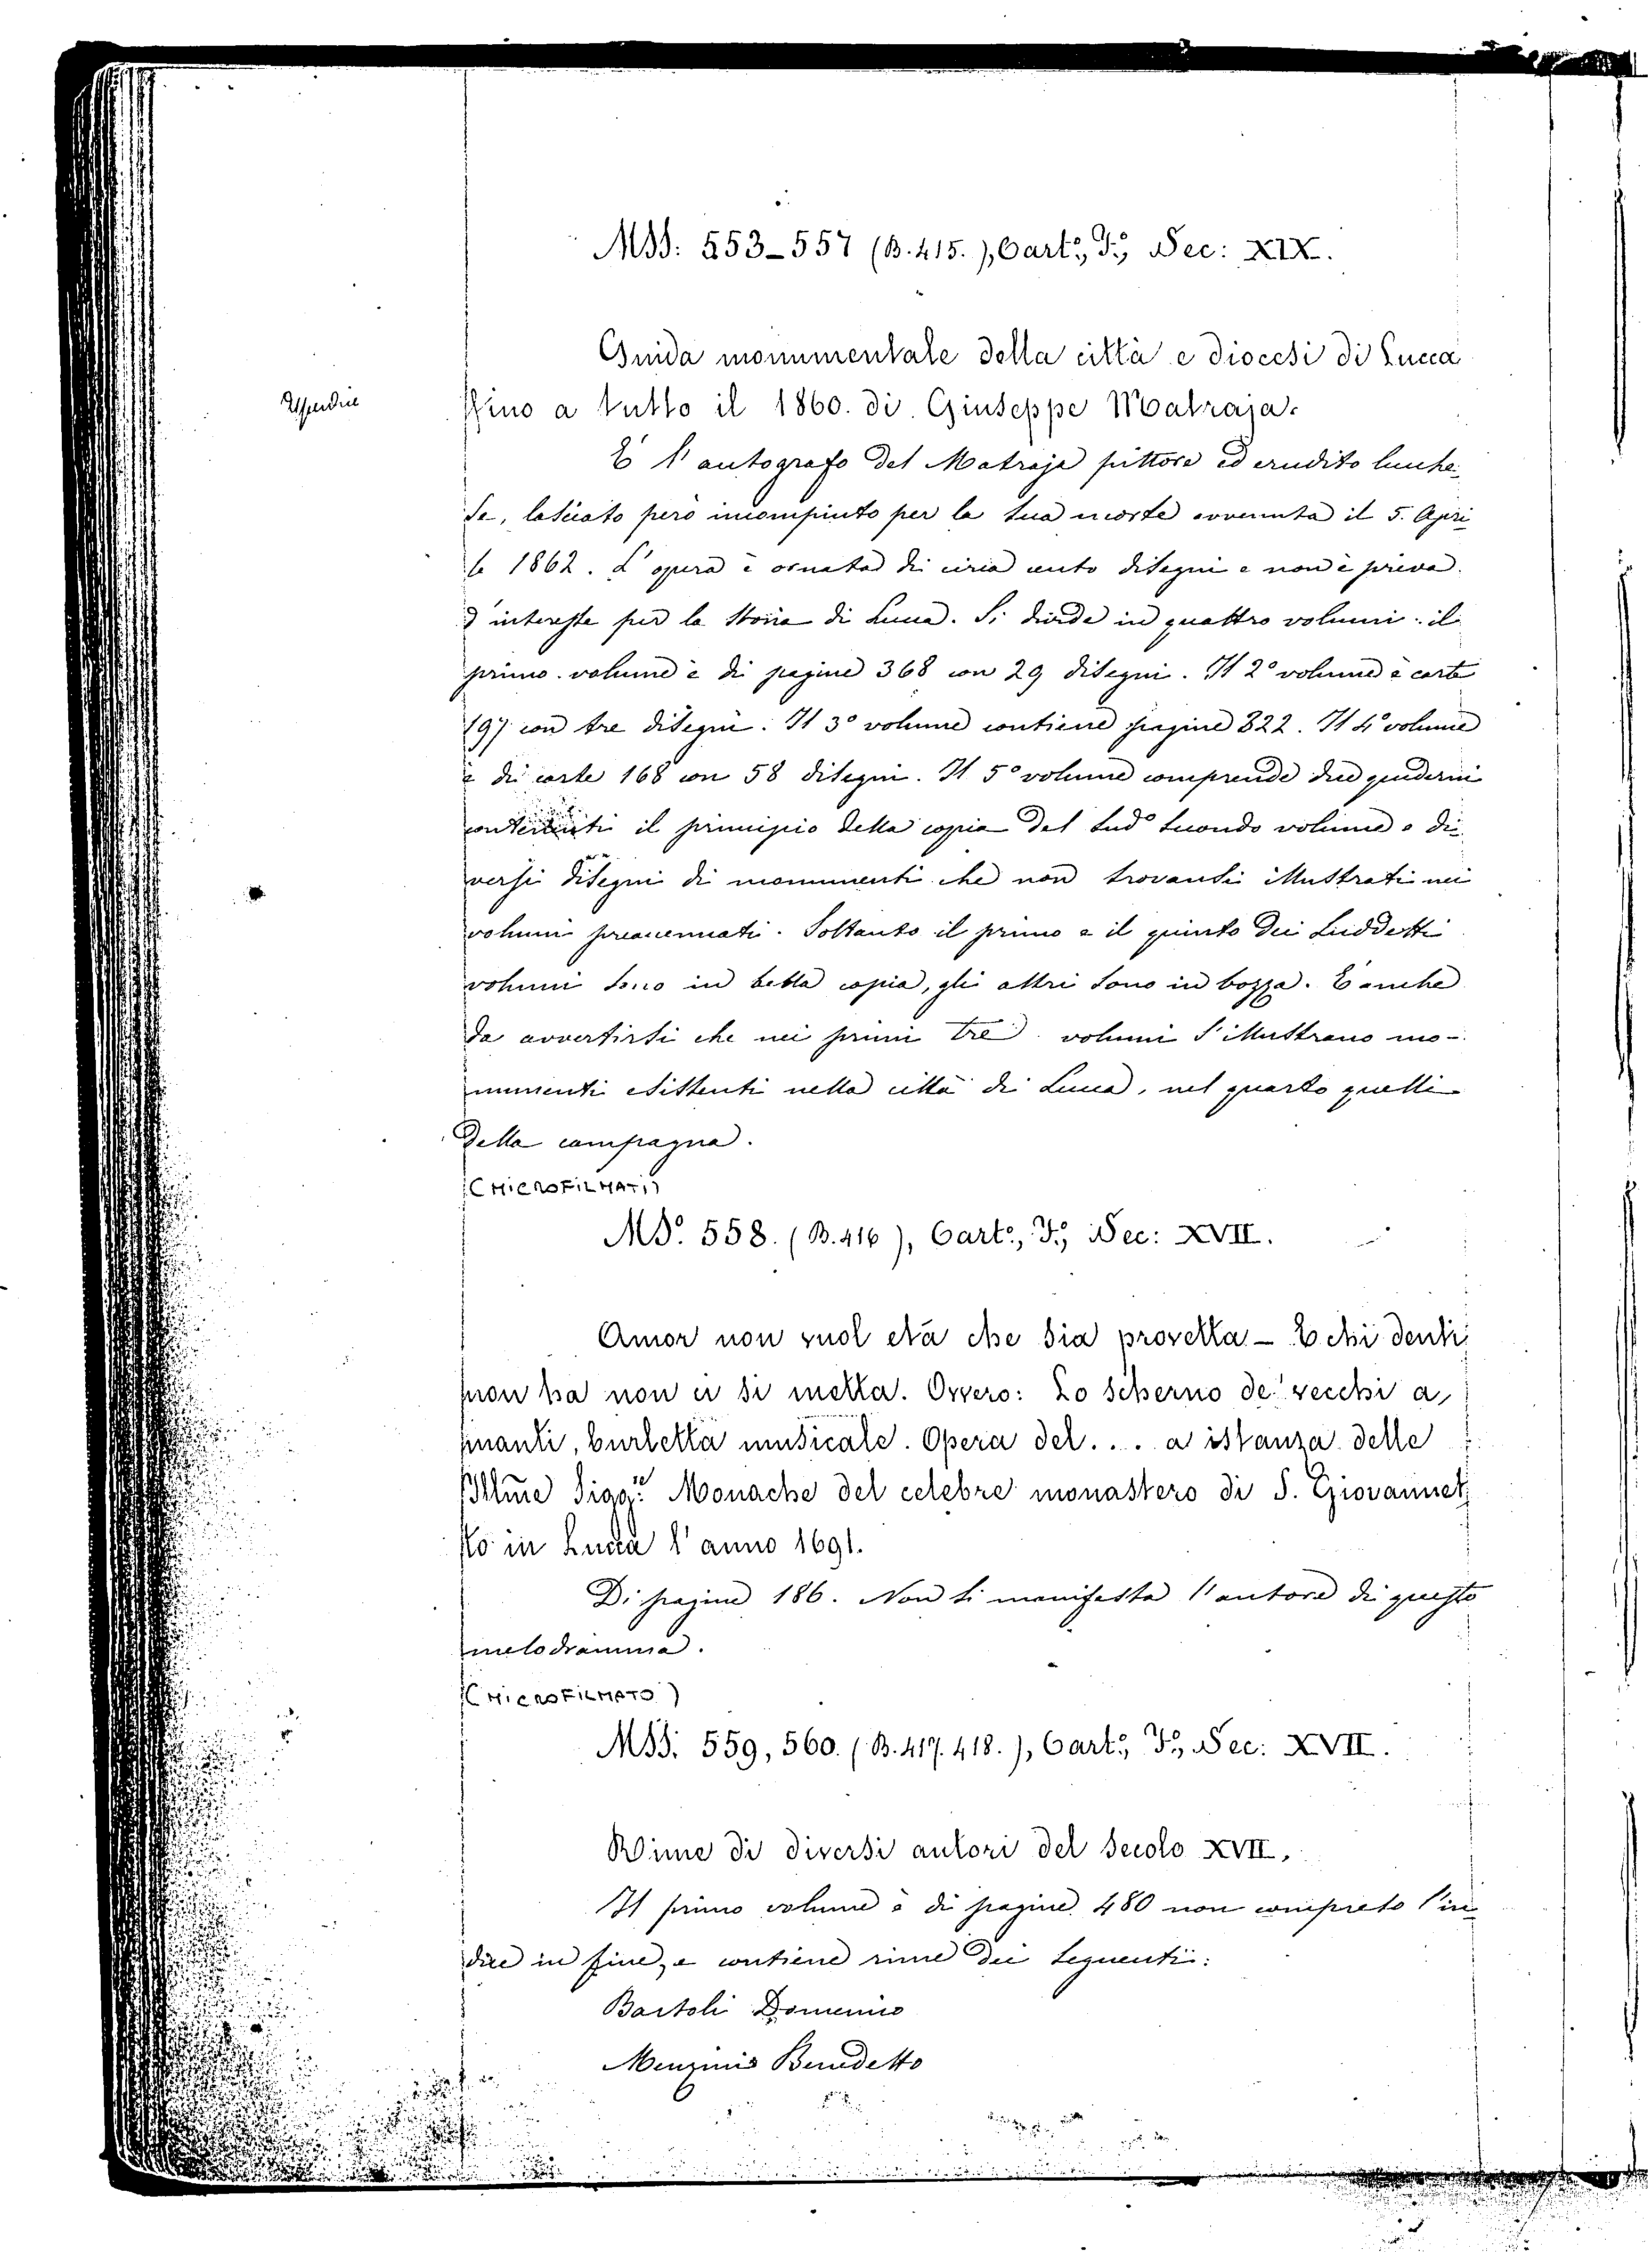 MSS: 553-557 (B. 415.), Cart.º, F.º, Sec: XIX.
Guida monumentale della città e diocesi di Lucca
fino a tutto il 1860. di Giuseppe Matraja.
È l'autografo del Matraja pittore ed erudito lucche-
se, lasciato però incompiuto per la sua morte avvenuta il 5. Apri
le 1862. L'opera è ornata di circa cento disegni e non è priva
d'interesse per la storia di Lucca. Si divide in quattro volumi: il
primo volume è di pagine 368 con 29 disegni. Il 2º volume è carte
197 con tre disegni. Il 3º volume contiene pagine 322. Il 4º volume
è di carte 168 con 58 disegni. Il 5º volume comprende due quaderni
contenenti il principio della copia del sudº secondo volume e di
versi disegni di monumenti che non trovansi illustrati nei
volumi preaccennati. Soltanto il primo e il quinto dei suddetti
volumi sono in bella copia, gli altri sono in bozza. È anche
da avvertirsi che nei primi tre volumi s'illustrano mo-
numenti esistenti nella città di Lucca, nel quarto quelli
della campagna.
(MICROFILMATI)
MS. 558. (B. 416), Cart.º, F.º, Sec: XVII.
Amor non vuol età che sia provetta - E chi denti
non ha non ci si metta. Ovvero: Lo scherno de' vecchi a
manti, burletta musicale. Opera del.... a istanza delle
Illme Sigg.re Monache del celebre monastero di S. Giovannet
to in Lucca l'anno 1691.
Di pagine 186. Non si manifesta l'autore di questo
melodramma.
(MICROFILMATO)
MSS: 559, 560. (B. 417. 418.), Cart.º, F.º, Sec: XVII.
Rime di diversi autori del secolo XVII.
Il primo volume è di pagine 480 non compreso l'in-
dice in fine, e contiene rime dei seguenti:
Bartoli Domenico
Menzini Benedetto